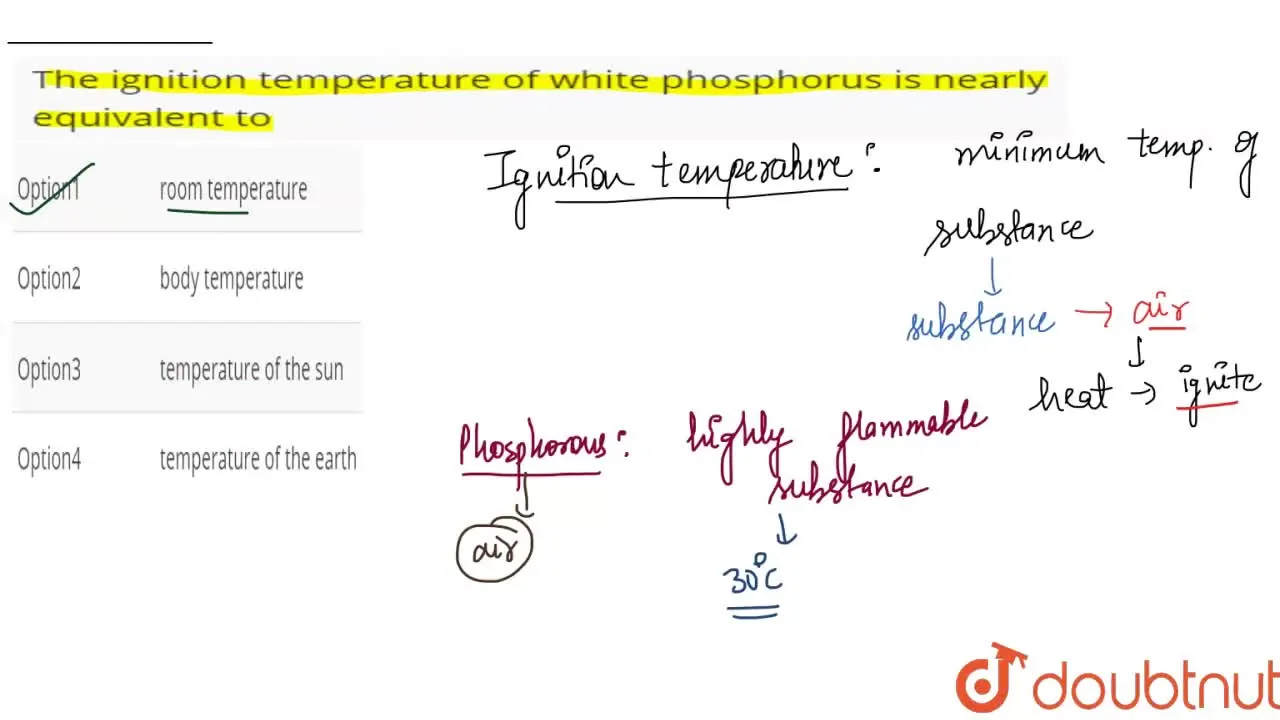 The ignition temperature of white phosphorus is nearly
equivalent to
Option1 room temperature
Option2 body temperature
Option3 temperature of the sun
Option4 temperature of the earth
Ignition temperature : minimum temp. of
substance
substance → air
heat → ignite
Phosphorous : highly flammable
substance
air
30°C
doubtnut